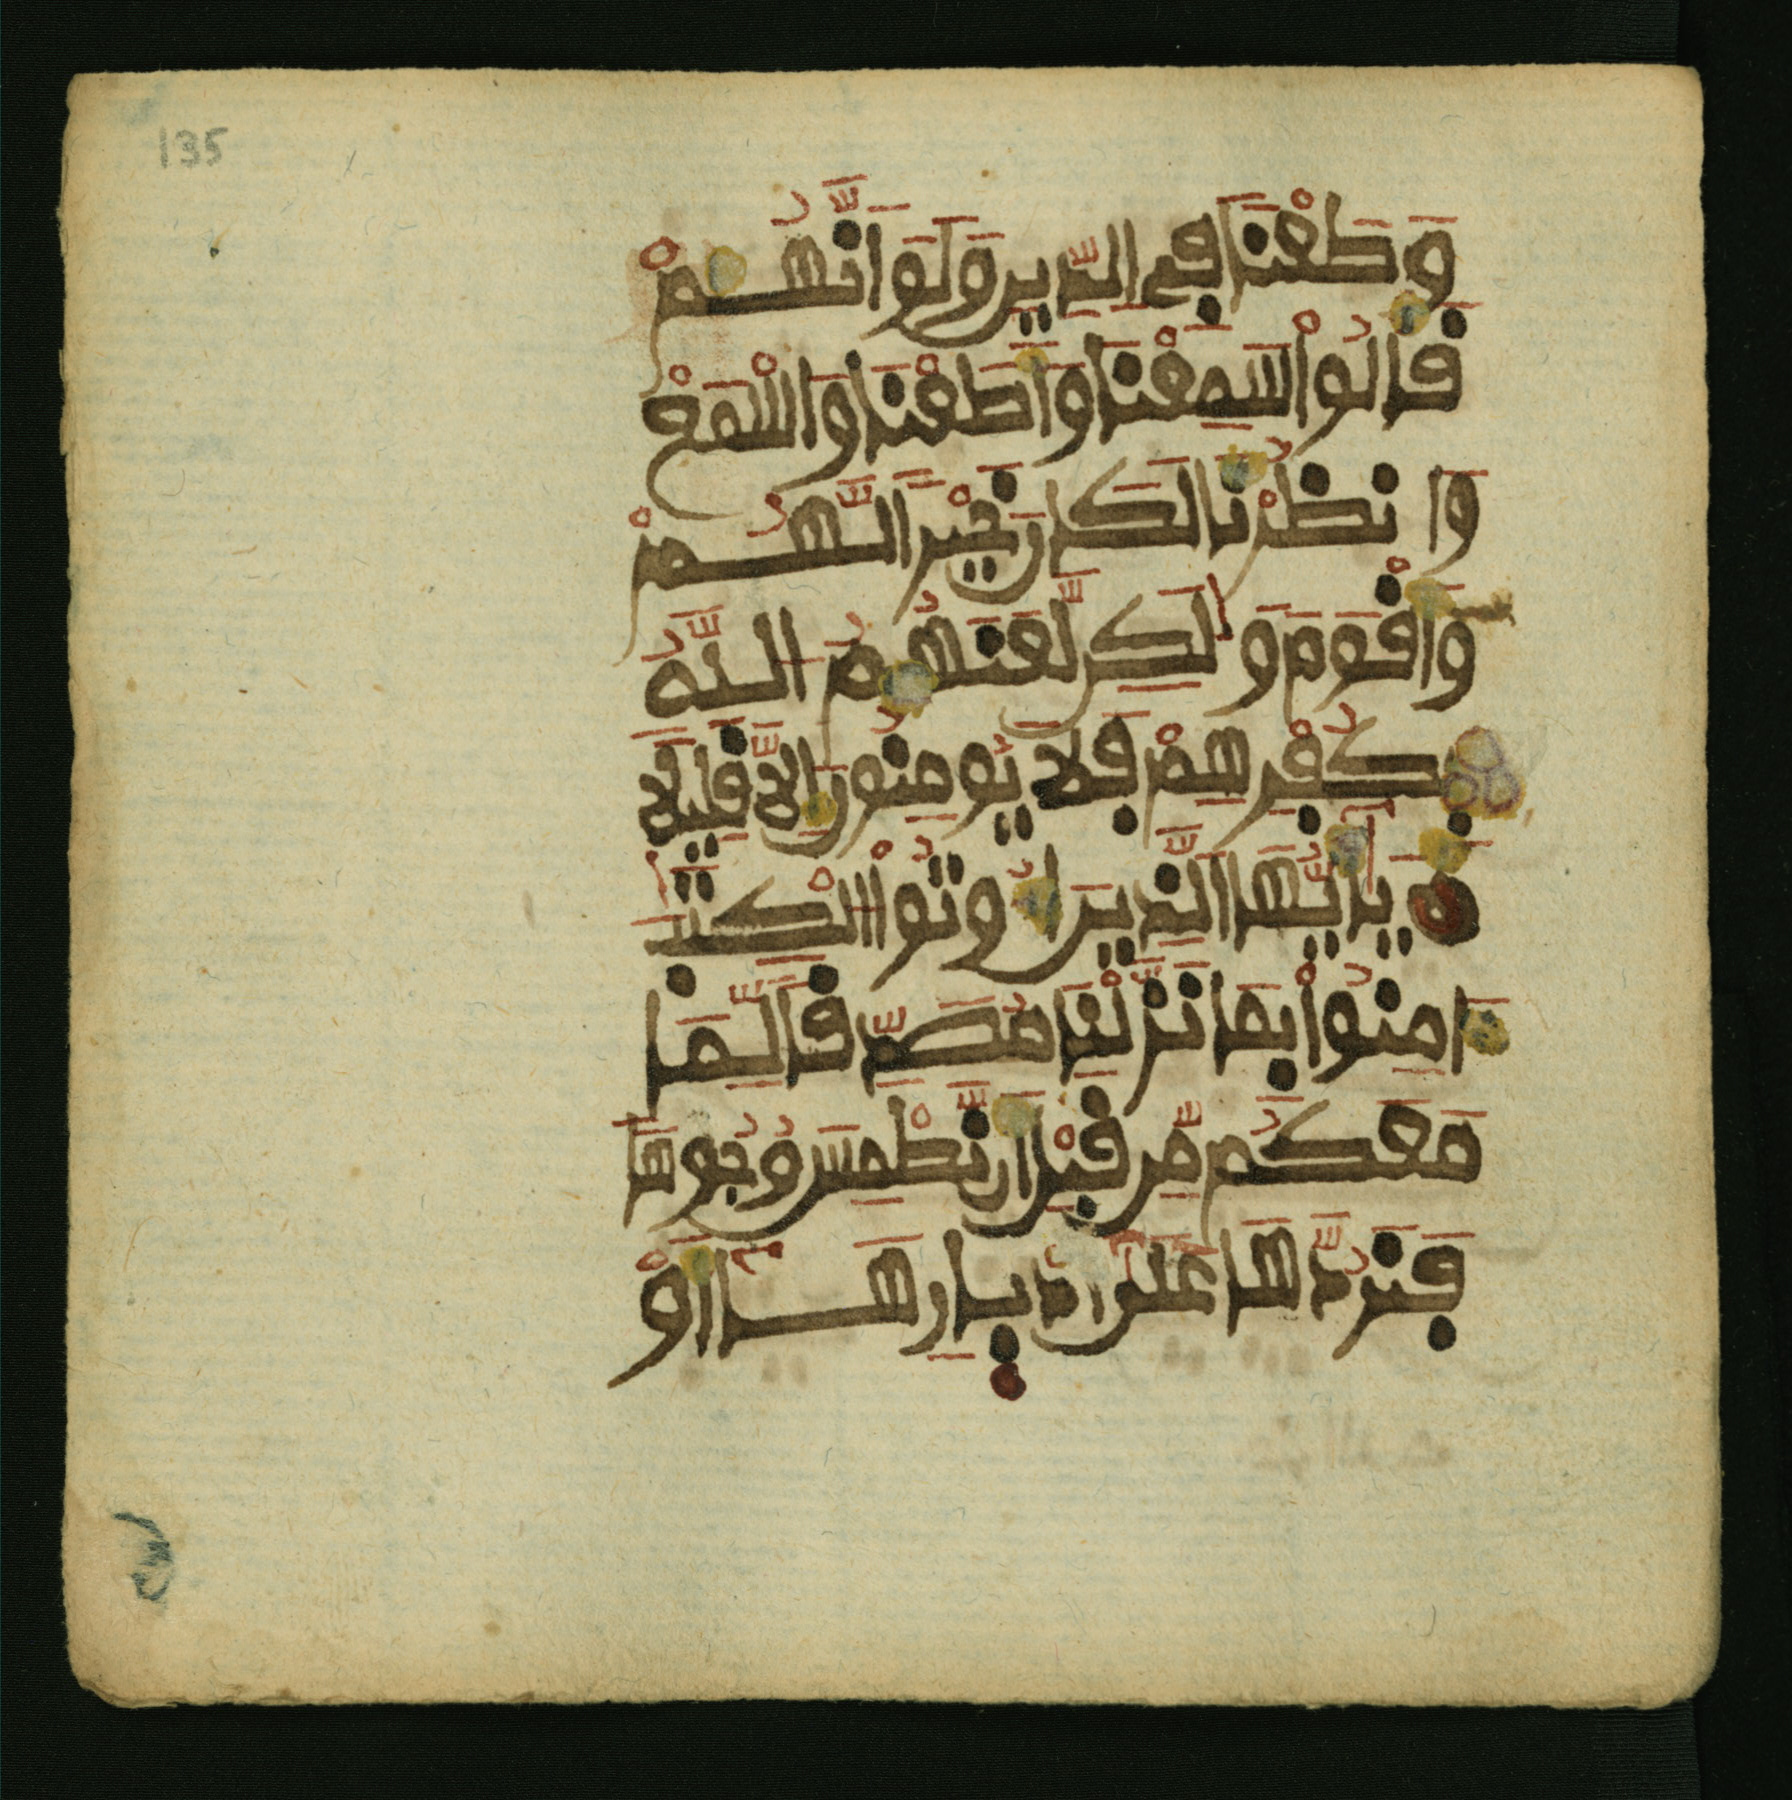 135
وَطَعْنًا فِي الدِّينِ وَلَوَ انَّهُمْ
قَالُواْ سَمِعْنَا وَأَطَعْنَا وَاسْمَعْ
وَانظُرْنَا لَكَانَ خَيْرًا لَّهُمْ
وَأَقْوَمَ وَلَكِن لَّعَنَهُمُ اللَّهُ
بِكُفْرِهِمْ فَلَا يُومِنُونَ إِلَّا قَلِيلًا
يَأَيُّهَا الَّذِينَ أُوتُواْ الْكِتَبَ
ءَامِنُواْ بِمَا نَزَّلْنَا مُصَدِّقًا لِّمَا
مَعَكُم مِّن قَبْلِ أَن نَّطْمِسَ وُجُوهًا
فَنَرُدَّهَا عَلَى أَدْبَارِهَا أَوْ